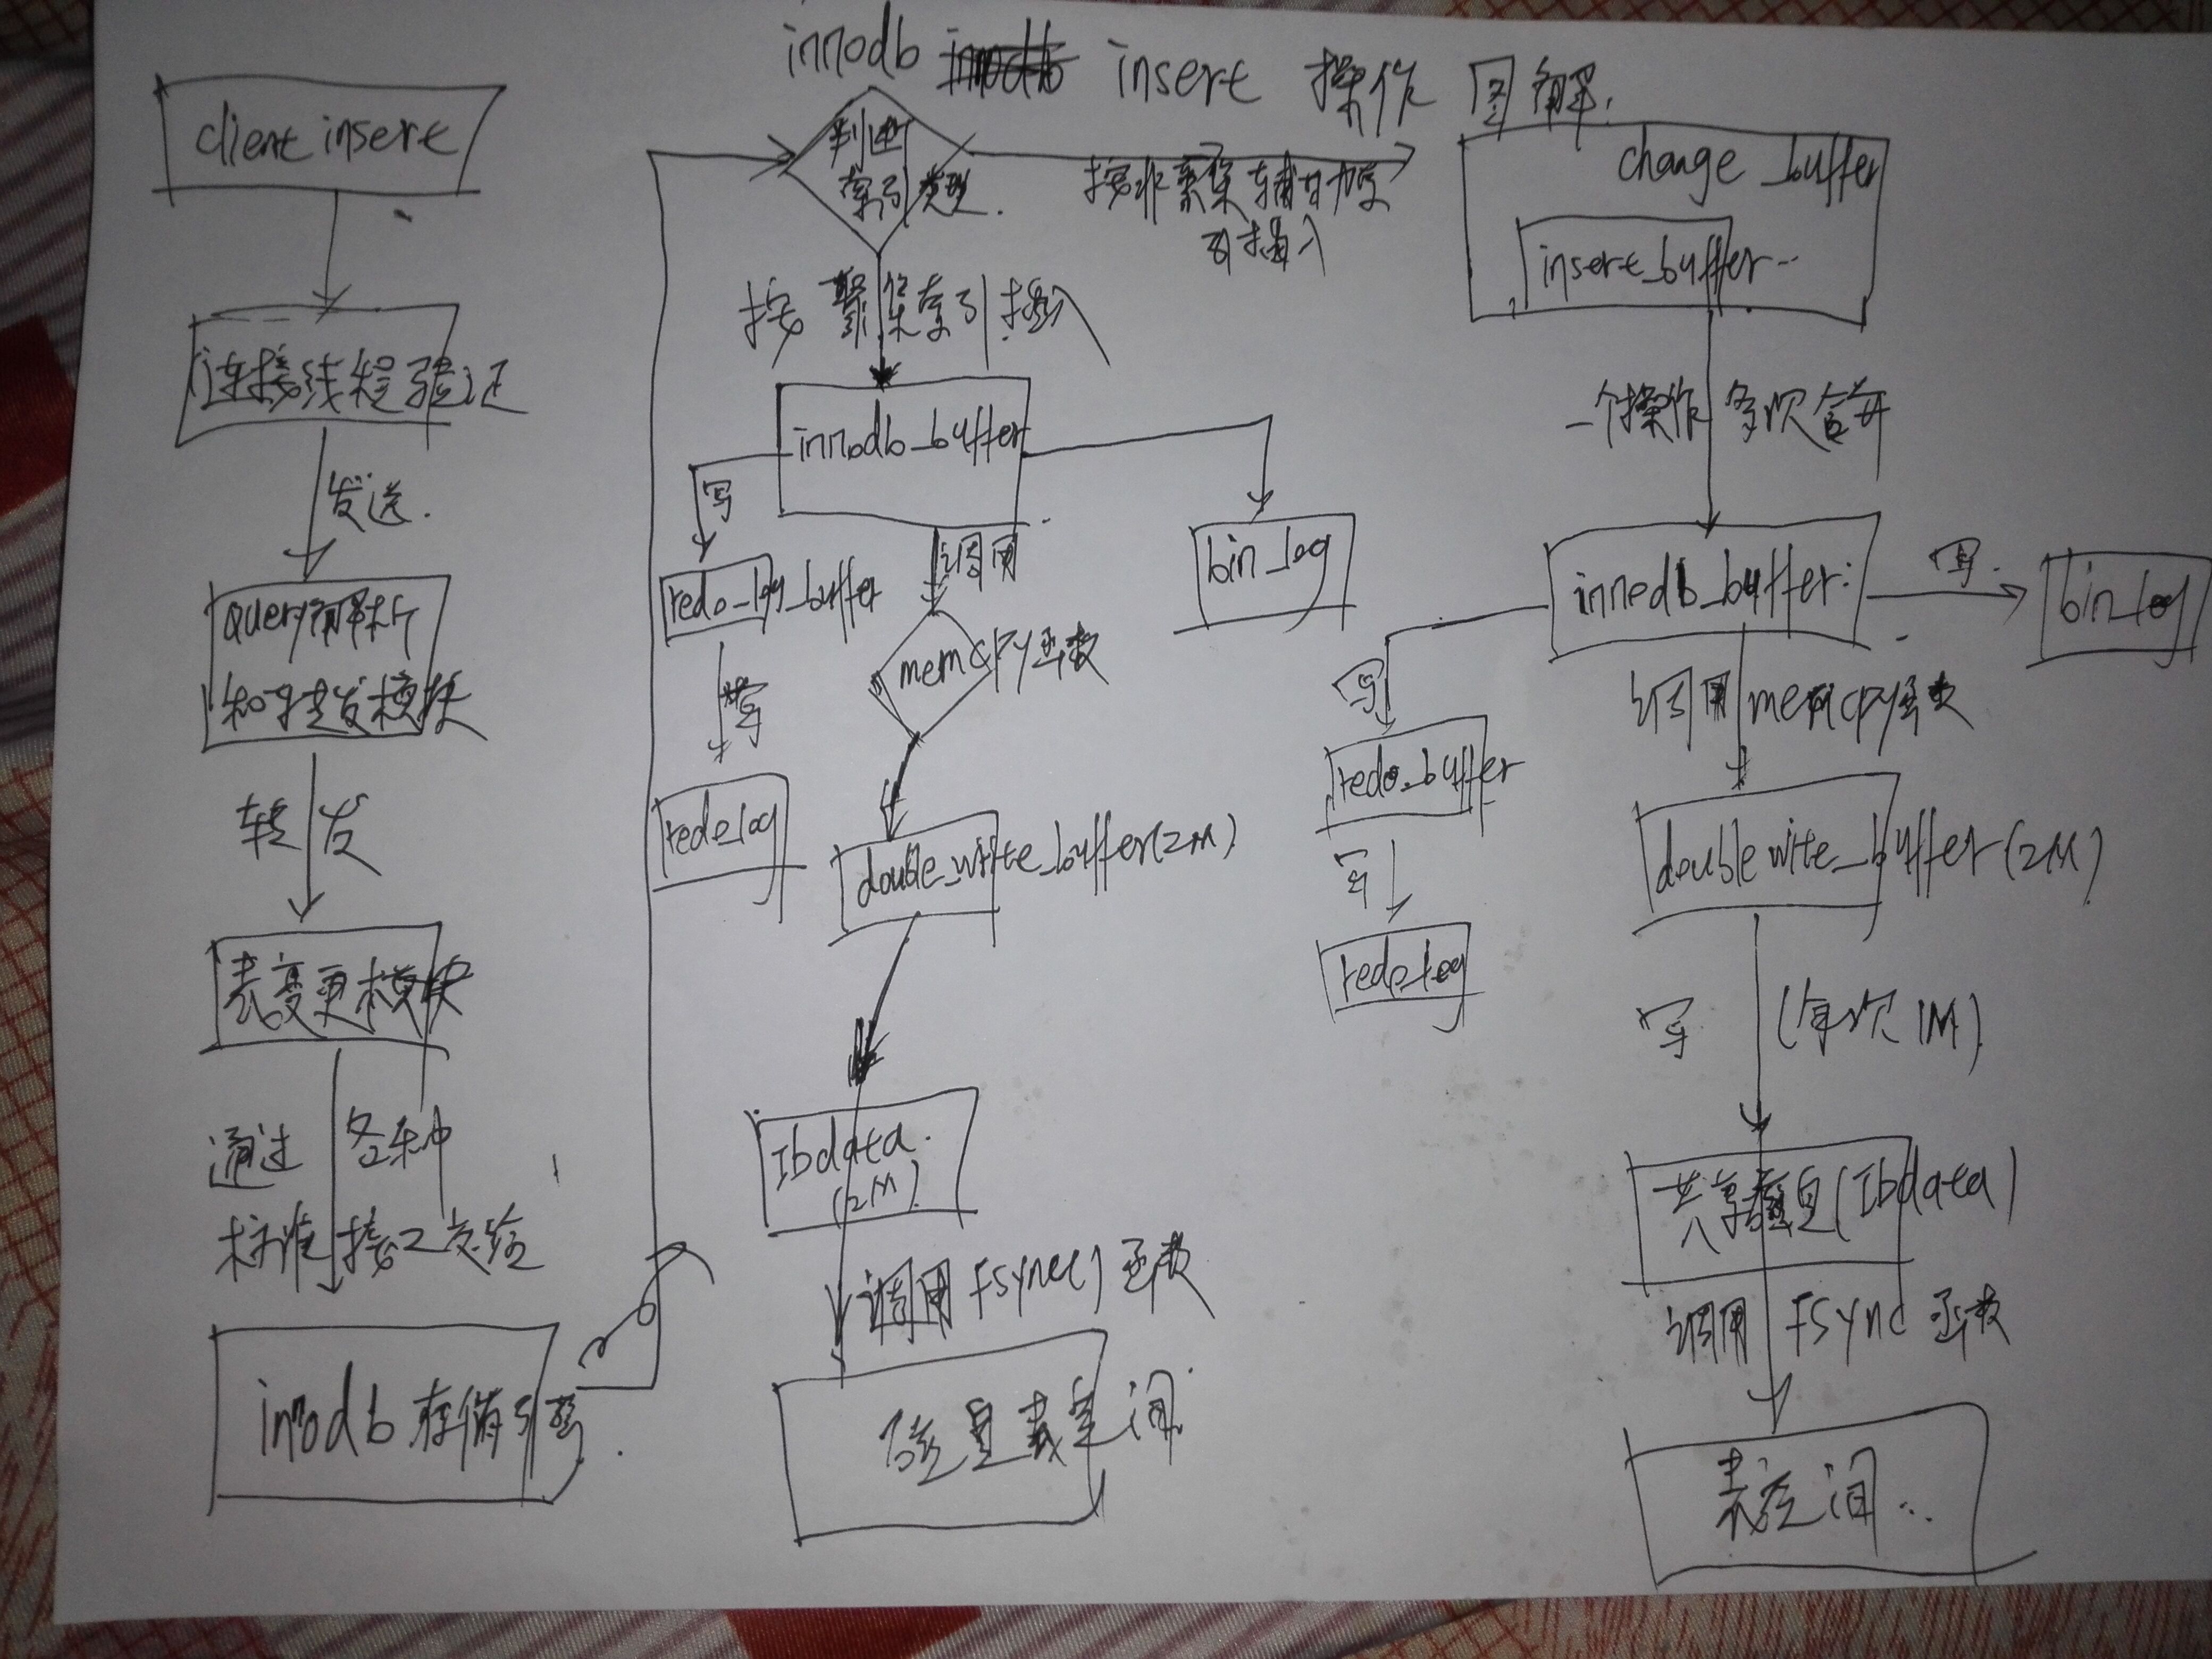 innodb insert 操作 图解.
client insert
连接线程验证
发送.
query解析
和转发模块
转发
表变更模块
通过 各种
标准接口交给
innodb 存储引擎.
判断
索引类型.
按非聚集辅助索
引插入
按 聚集索引插入
innodb_buffer
写
redo_log_buffer
写
redo_log
调用
memcpy函数
bin_log
double_write_buffer(2M)
Ibdata.
(2M)
调用 Fsync() 函数
磁盘表空间.
change_buffer
insert_buffer..
一个操作 多次合并
innodb_buffer:
写.
bin_log
写
redo_buffer
写
redo_log
调用 memcpy函数
double write_buffer(2M)
写 (每次1M)
共享磁盘(Ibdata)
调用 Fsync 函数
表空间..